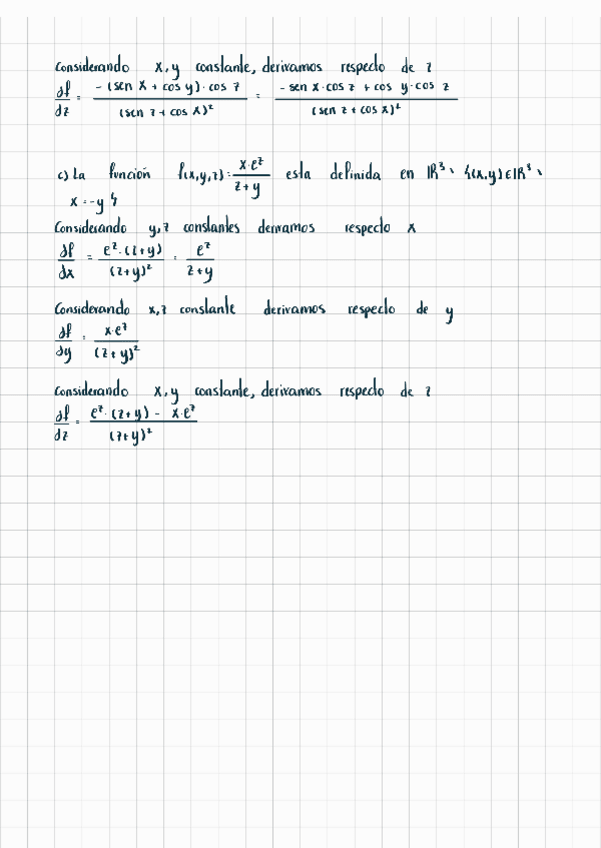 Considerando x,y constante, derivamos respecto de z
df/dz = -(sen x + cos y)·cos z / (sen z + cos x)² = -sen x·cos z + cos y·cos z / (sen z + cos x)²
c) La función f(x,y,z) = x·e^z / z+y esta definida en IR³ \ {(x,y) ∈ IR³ \
x = -y}
Considerando y,z constantes derivamos respecto x
df/dx = e^z·(z+y) / (z+y)² = e^z / z+y
Considerando x,z constante derivamos respecto de y
df/dy = x·e^z / (z+y)²
Considerando x,y constante, derivamos respecto de z
df/dz = e^z·(z+y) - x·e^z / (z+y)²